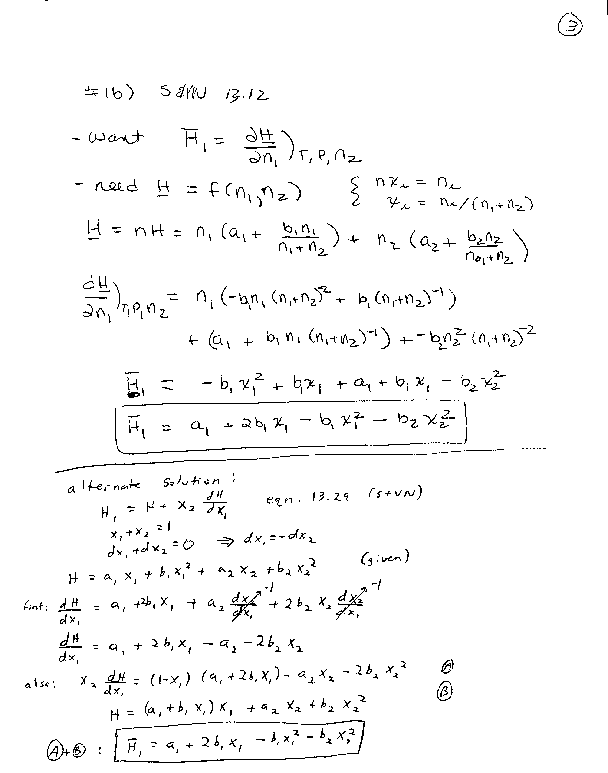 ③
#1b) S&VN 13.12
- want H̄₁ = ∂H/∂n₁)T,P,n₂
- need H = f(n₁,n₂) { n xᵢ = nᵢ
xᵢ = nᵢ/(n₁+n₂)
H = nH = n₁ (a₁ + b₁n₁/(n₁+n₂)) + n₂ (a₂ + b₂n₂/(n₁+n₂))
∂H/∂n₁)T,P,n₂ = n₁ (-b₁n₁ (n₁+n₂)⁻² + b₁ (n₁+n₂)⁻¹)
+ (a₁ + b₁n₁ (n₁+n₂)⁻¹) + -b₂n₂² (n₁+n₂)⁻²
H̄₁ = -b₁x₁² + b₁x₁ + a₁ + b₁x₁ - b₂x₂²
H̄₁ = a₁ + 2b₁x₁ - b₁x₁² - b₂x₂²
alternate solution:
H̄₁ = H + x₂ dH/dx₁ eqn. 13.29 (S+VN)
x₁+x₂ = 1
dx₁+dx₂ = 0 ⇒ dx₁ = -dx₂
H = a₁x₁ + b₁x₁² + a₂x₂ + b₂x₂² (given)
first: dH/dx₁ = a₁ + 2b₁x₁ + a₂ dx₂/dx₁ -1 + 2b₂x₂ dx₂/dx₁ -1
dH/dx₁ = a₁ + 2b₁x₁ - a₂ - 2b₂x₂
also: x₂ dH/dx₁ = (1-x₁) (a₁+2b₁x₁) - a₂x₂ - 2b₂x₂² Ⓐ
H = (a₁+b₁x₁) x₁ + a₂x₂ + b₂x₂² Ⓑ
Ⓐ+Ⓑ : H̄₁ = a₁ + 2b₁x₁ - b₁x₁² - b₂x₂²